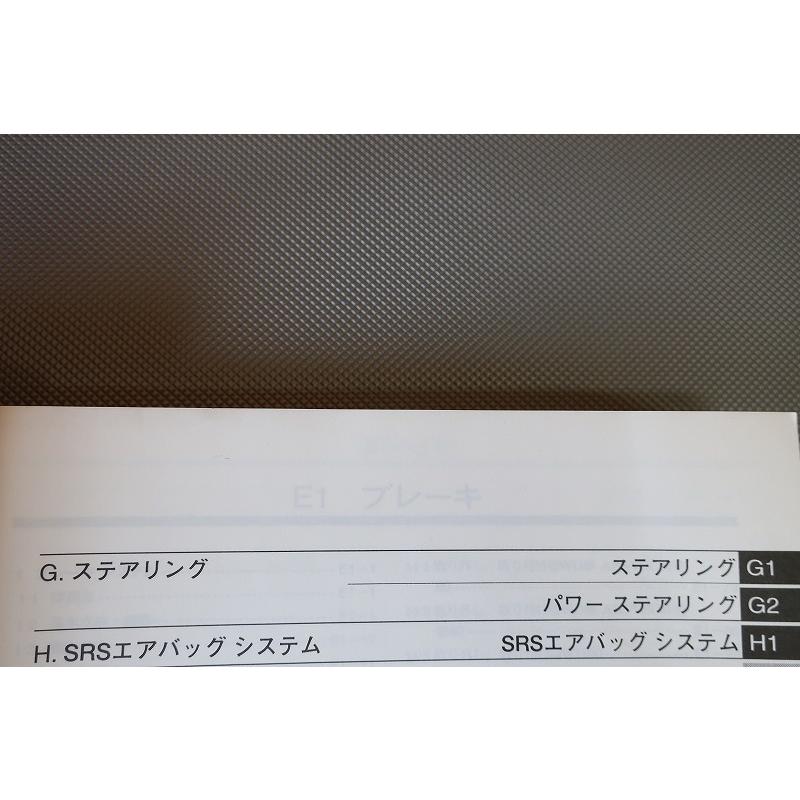 E1 ブレーキ
G. ステアリング ステアリング G1
パワー ステアリング G2
H. SRSエアバッグ システム SRSエアバッグ システム H1